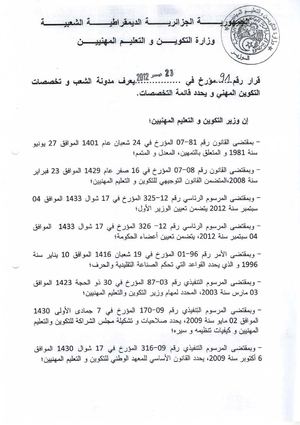 الجمهوريـــة الجزائريـــة الديمقراطيـــة الشعبيـــة
وزارة التكويـــن و التعليـم المهنييـن
قرار رقم 91 مؤرخ في 23 ديسمبر 2012 يعرف مدونة الشعب و تخصصات
التكوين المهني و يحدد قائمة التخصصات.
إن وزير التكوين و التعليم المهنيين؛
– بمقتضى القانون رقم 81-07 المؤرخ في 24 شعبان عام 1401 الموافق 27 يونيو
سنة 1981 و المتعلق بالتمهين، المعدل و المتمم؛
– وبمقتضى القانون رقم 08-07 المؤرخ في 16 صفر عام 1429 الموافق 23 فبراير
سنة 2008،المتضمن القانون التوجيهي للتكوين و التعليم المهنيين؛
– وبمقتضى المرسوم الرئاسي رقم 12– 325 المؤرخ في 17 شوال 1433 الموافق 04
سبتمبر سنة 2012 يتضمن تعيين الوزير الأول؛
– وبمقتضى المرسوم الرئاسي رقم 12– 326 المؤرخ في 17 شوال 1433 الموافق
04 سبتمبر سنة 2012، يتضمن تعيين أعضاء الحكومة؛
– وبمقتضى الأمر رقم 96-01 المؤرخ في 19 شعبان 1416 الموافق 10 يناير سنة
1996 و الذي يحدد القواعد التي تحكم الصناعة التقليدية والحرف؛
– وبمقتضى المرسوم التنفيذي رقم 03-87 المؤرخ في 30 ذو الحجة 1423 الموافق
03 مارس سنة 2003، المحدد لمهام وزير التكوين والتعليم المهنيين؛
– وبمقتضى المرسوم التنفيذي رقم 09-170 المؤرخ في 7 جمادى الأولى 1430
الموافق 02 مايو سنة 2009، يحدد صلاحيات و تشكيلة مجلس الشراكة للتكوين والتعليم
المهنيين و كيفيات تنظيمه و سيره؛
– وبمقتضى المرسوم التنفيذي رقم 09-316 المؤرخ في 17 شوال 1430 الموافق
6 أكتوبر سنة 2009، يحدد القانون الأساسي للمعهد الوطني للتكوين و التعليم المهنيين؛